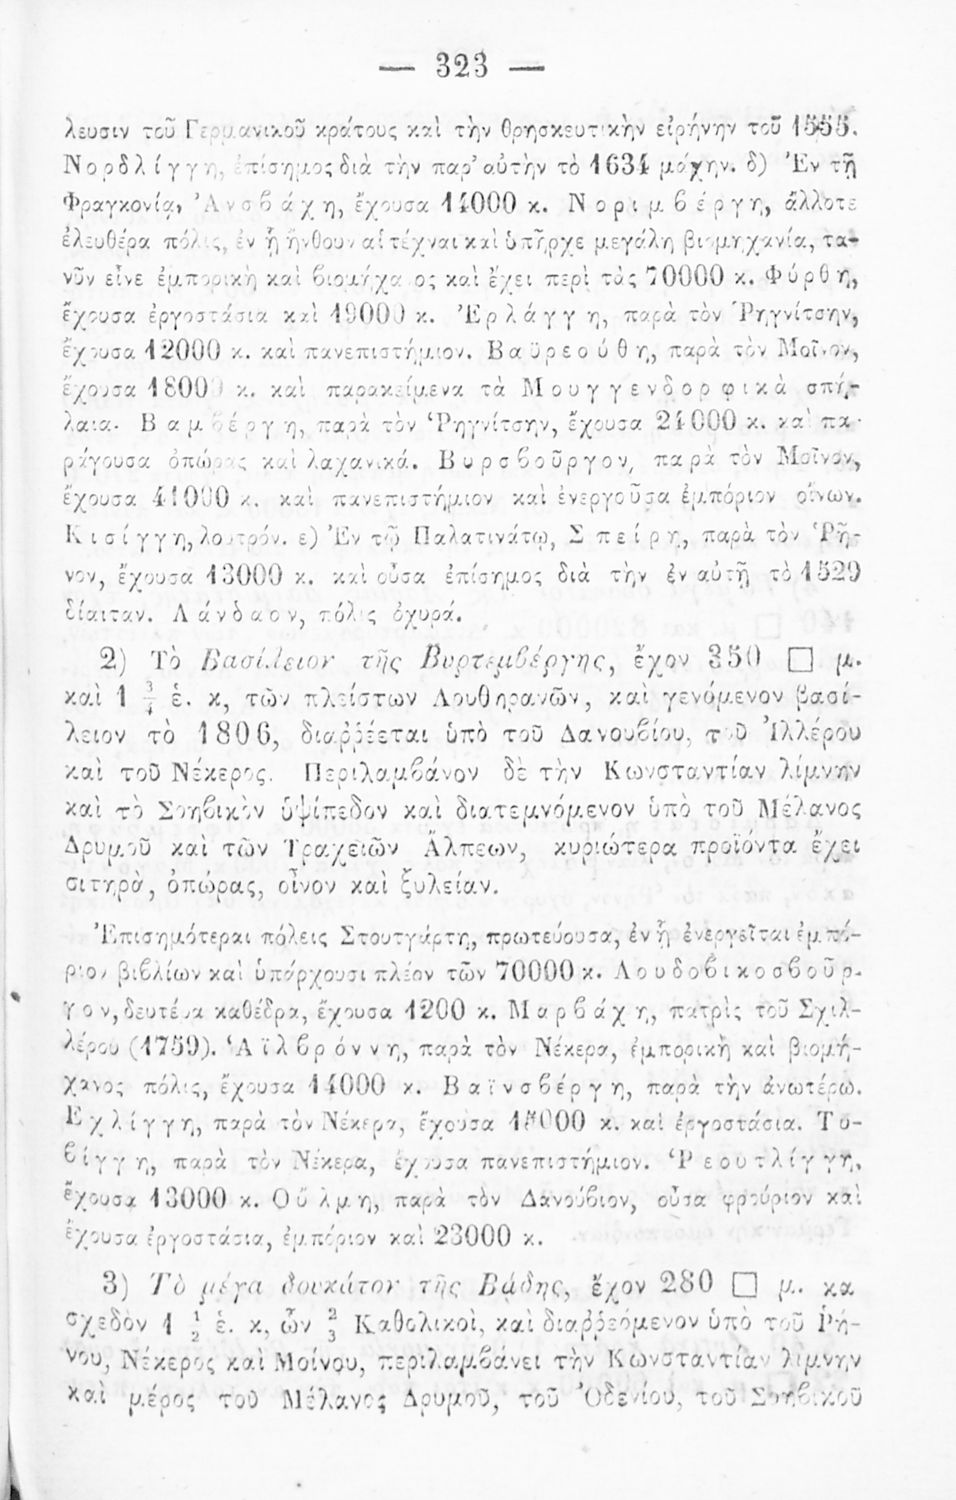 — 323 —
λευσιν τοῦ Γερμανικοῦ κράτους καὶ τὴν θρησκευτικὴν εἰρήνην τοῦ 1555.
Νορδλίγγη, ἐπίσημος διὰ τὴν παρ' αὐτὴν τὸ 1634 μάχην. δ) Ἐν τῇ
Φραγκονίᾳ, Ἀνσβάχη, ἔχουσα 14000 κ. Νοριμβέργη, ἄλλοτε
ἐλευθέρα πόλις, ἐν ᾗ ἤνθουν αἱ τέχναι καὶ ὑπῆρχε μεγάλη βιομηχανία, τα-
νῦν εἶνε ἐμπορικὴ καὶ βιομήχανος καὶ ἔχει περὶ τὰς 70000 κ. Φύρθη,
ἔχουσα ἐργοστάσια καὶ 19000 κ. Ἐρλάγγη, παρὰ τὸν Ῥηγνίτσην,
ἔχουσα 12000 κ. καὶ πανεπιστήμιον. Βαϋρεούθη, παρὰ τὸν Μοῖνον,
ἔχουσα 18000 κ. καὶ παρακείμενα τὰ Μουγγενδορφικὰ σπή-
λαια. Βαμβέργη, παρὰ τὸν Ῥηγνίτσην, ἔχουσα 24000 κ. καὶ πα-
ράγουσα ὀπώρας καὶ λαχανικά. Βυρσβοῦργον, παρὰ τὸν Μοῖνον,
ἔχουσα 41000 κ. καὶ πανεπιστήμιον καὶ ἐνεργοῦσα ἐμπόριον οἴνων.
Κισίγγη, λουτρόν. ε) Ἐν τῷ Παλατινάτῳ, Σπείρη, παρὰ τὸν Ῥῆ-
νον, ἔχουσα 13000 κ. καὶ οὖσα ἐπίσημος διὰ τὴν ἐν αὐτῇ τὸ 1529
δίαιταν. Λάνδαον, πόλις ὀχυρά.
2) Τὸ Βασίλειον τῆς Βυρτεμβέργης, ἔχον 350 □ μ.
καὶ 1 3/4 ἑ. κ, τῶν πλείστων Λουθηρανῶν, καὶ γενόμενον βασί-
λειον τὸ 1806, διαῤῥέεται ὑπὸ τοῦ Δανουβίου, τοῦ Ἰλλέρου
καὶ τοῦ Νέκερος. Περιλαμβάνον δὲ τὴν Κωνσταντίαν λίμνην
καὶ τὸ Σουηβικὸν ὑψίπεδον καὶ διατεμνόμενον ὑπὸ τοῦ Μέλανος
Δρυμοῦ καὶ τῶν Τραχειῶν Ἄλπεων, κυριώτερα προϊόντα ἔχει
σιτηρὰ, ὀπώρας, οἶνον καὶ ξυλείαν.
Ἐπισημότεραι πόλεις Στουτγάρτη, πρωτεύουσα, ἐν ᾗ ἐνεργεῖται ἐμπό-
ριον βιβλίων καὶ ὑπάρχουσι πλέον τῶν 70000 κ. Λουδοβικοσβοῦρ-
γον, δευτέρα καθέδρα, ἔχουσα 1200 κ. Μαρβάχη, πατρὶς τοῦ Σχιλ-
λέρου (1759). Ἁϊλβρόννη, παρὰ τὸν Νέκερα, ἐμπορικὴ καὶ βιομή-
χανος πόλις, ἔχουσα 14000 κ. Βαϊνσβέργη, παρὰ τὴν ἀνωτέρω.
Ἐχλίγγη, παρὰ τὸν Νέκερα, ἔχουσα κ. καὶ ἐργοστάσια. Τυ-
βίγγη, παρὰ τὸν Νέκερα, ἔχουσα πανεπιστήμιον. Ῥεουτλίγγη,
ἔχουσα 13000 κ. Οὔλμη, παρὰ τὸν Δανούβιον, οὖσα φρούριον καὶ
ἔχουσα ἐργοστάσια, ἐμπόριον καὶ 23000 κ.
3) Τὸ μέγα δουκάτον τῆς Βάδης, ἔχον 280 □ μ. κα
σχεδὸν 1 1/2 ἑ. κ, ὧν 2/3 Καθολικοὶ, καὶ διαῤῥεόμενον ὑπὸ τοῦ Ῥή-
νου, Νέκερος καὶ Μοίνου, περιλαμβάνει τὴν Κωνσταντίαν λίμνην
καὶ μέρος τοῦ Μέλανος Δρυμοῦ, τοῦ Ὀδενίου, τοῦ Σουηβικοῦ